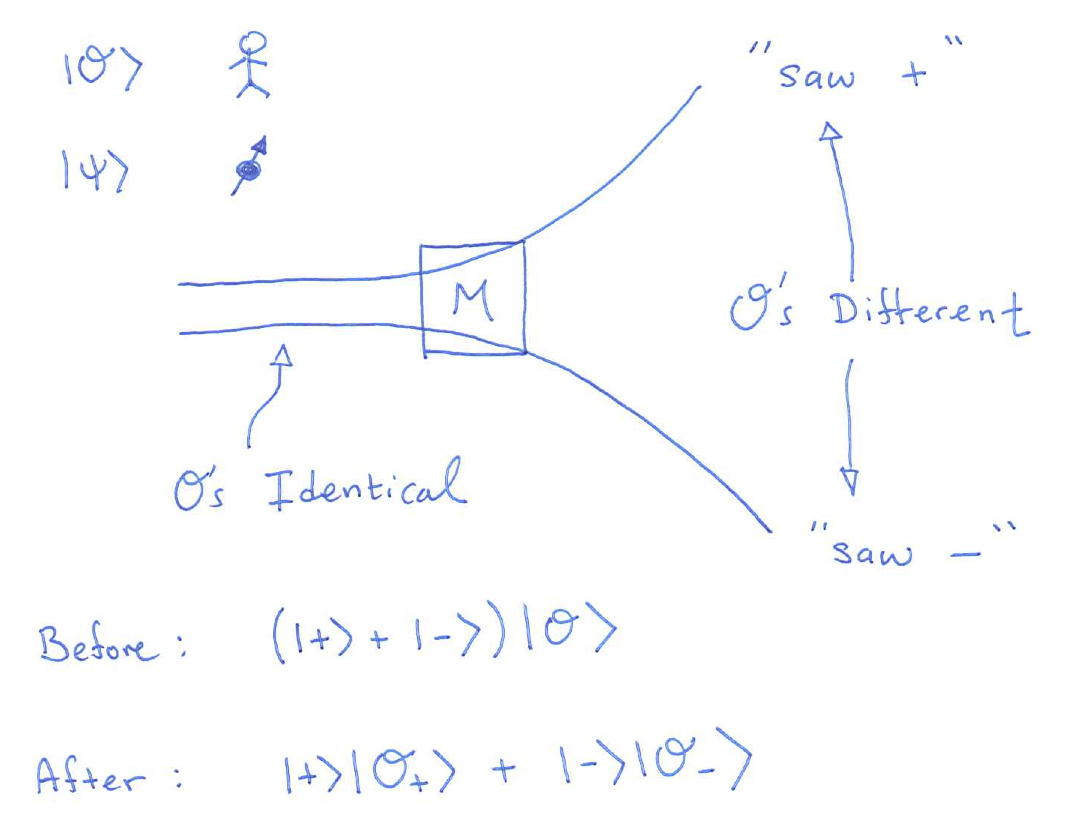 |𝒪⟩
"saw +"
|ψ⟩
M
𝒪's Different
𝒪's Identical
"saw −"
Before: (|+⟩ + |−⟩)|𝒪⟩
After: |+⟩|𝒪₊⟩ + |−⟩|𝒪₋⟩